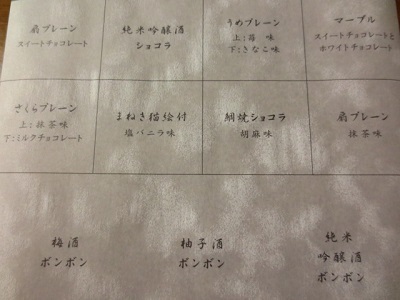 扇プレーン
スイートチョコレート
純米吟醸酒
ショコラ
うめプレーン
上:苺 味
下:きなこ味
マーブル
スイートチョコレートと
ホワイトチョコレート
さくらプレーン
上:抹茶味
下:ミルクチョコレート
まねき猫絵付
塩バニラ味
網焼ショコラ
胡麻味
扇プレーン
抹茶味
梅酒
ボンボン
柚子酒
ボンボン
純米
吟醸酒
ボンボン